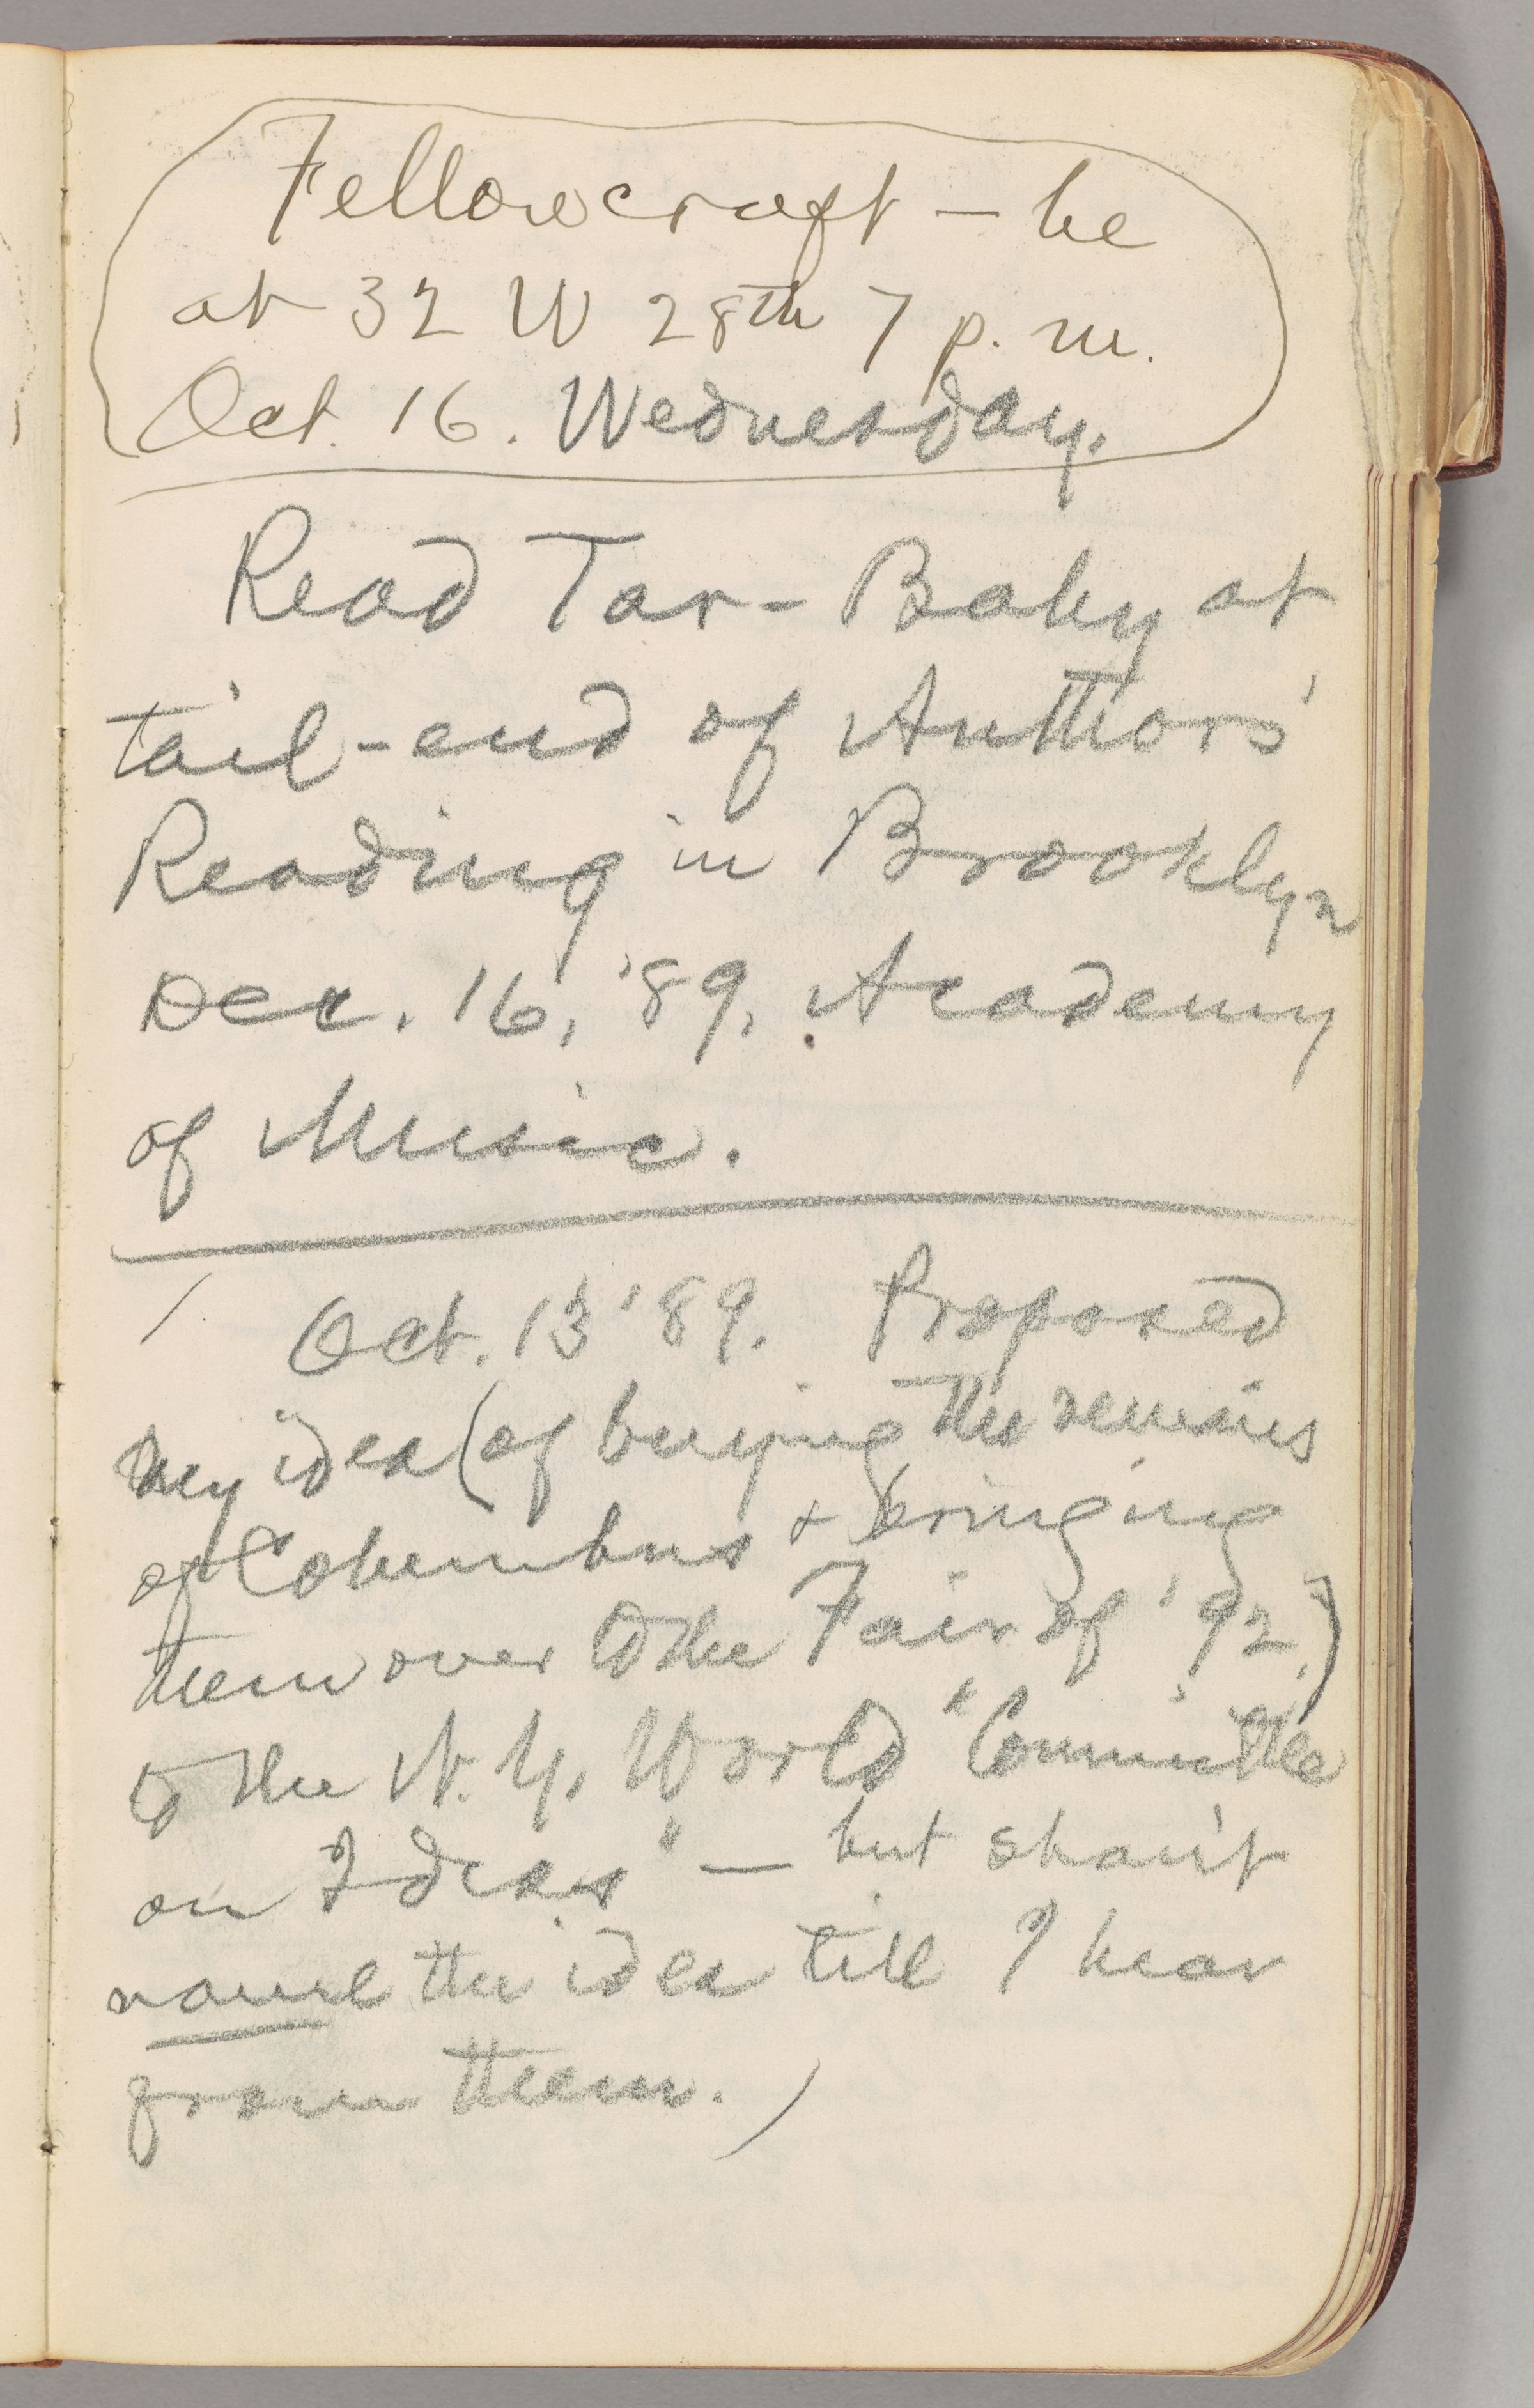 Fellowcraft — be
at 32 W 28th 7 p. m.
Oct. 16. Wednesday.
Read Tar-Baby at
tail-end of Authors'
Reading in Brooklyn
Dec. 16, '89, Academy
of Music.
Oct. 13 '89. Proposed
my idea (of buying the remains
of Columbus & bringing
them over to the Fair of '92,)
to the N. Y. World "Committee
on Ideas" — but shan't
name the idea till I hear
from them.)